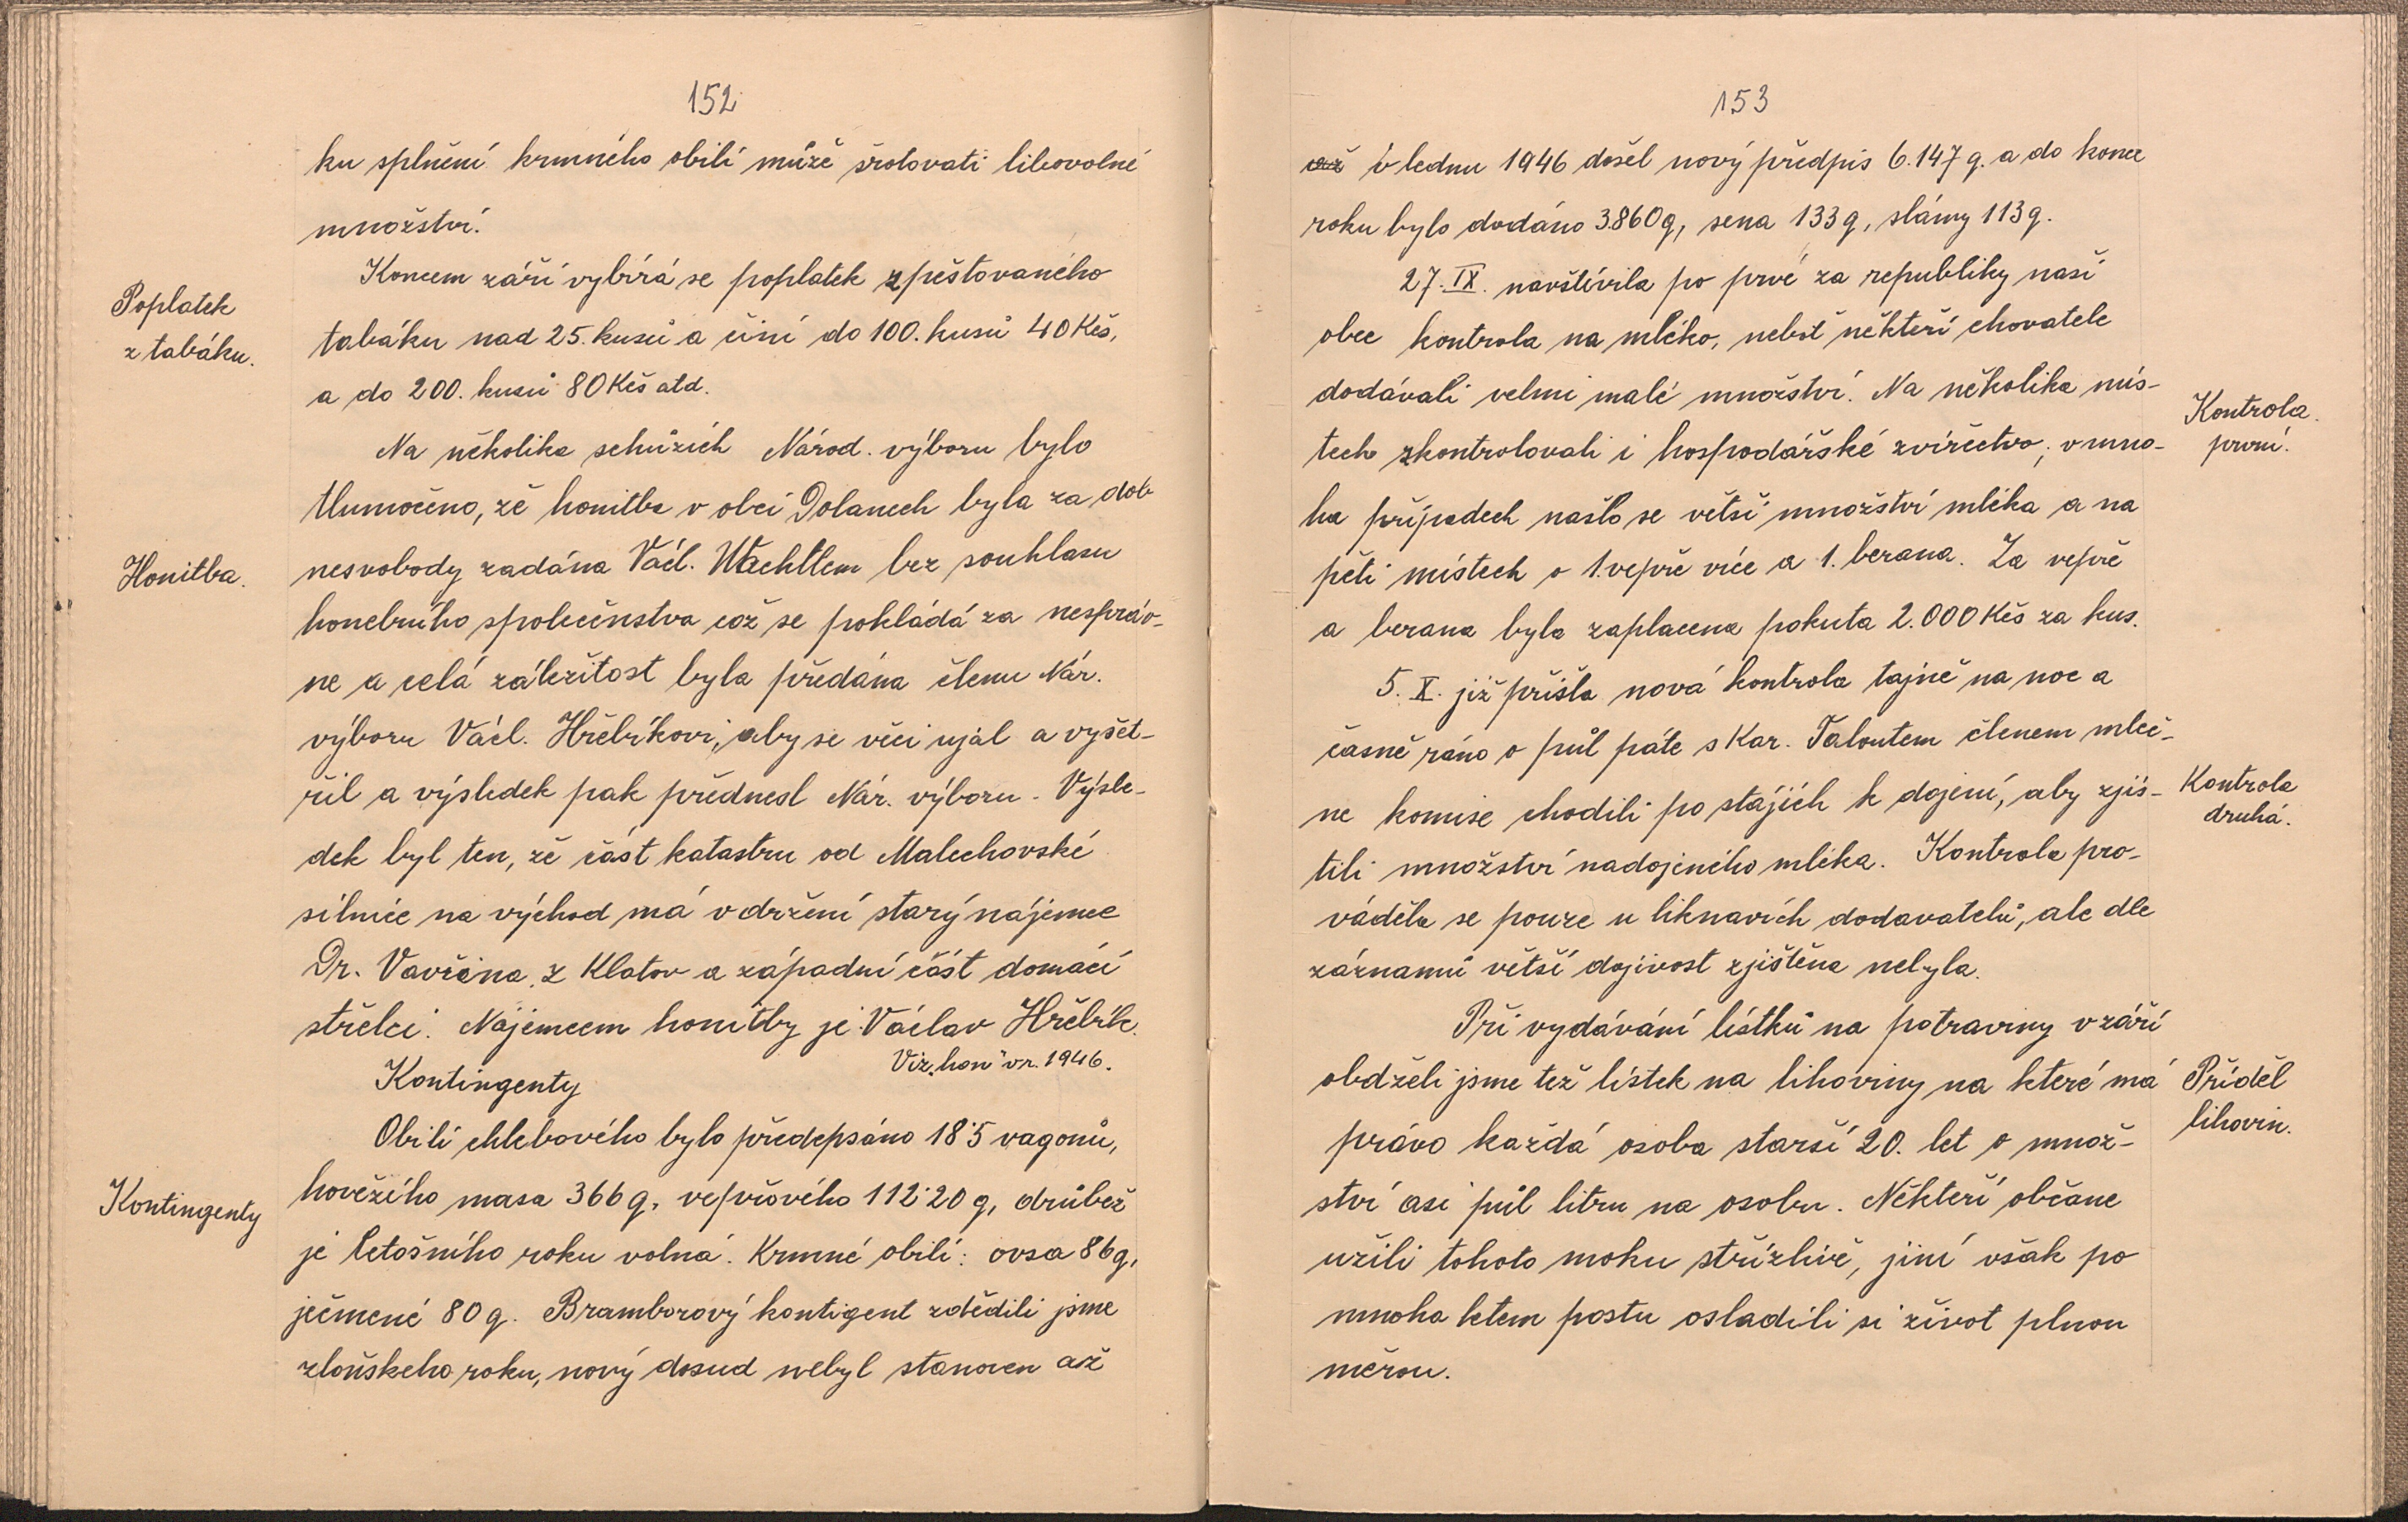 152
ku splnění krmného obilí může šrotovati libovolné
množství.
Poplatek
z tabáku.
Koncem září vybírá se poplatek z pěstovaného
tabáku nad 25. kusů a činí do 100. kusů 40 Kčs,
a do 200. kusů 80 Kčs atd.
Na několika schůzích Národ. výboru bylo
tlumočeno, že honitba v obci Dolanech byla za dob
Honitba.
nesvobody zadána Václ. Wachtlem bez souhlasu
honebního společenstva což se pokládá za nespráv-
ne a celá záležitost byla předána členu Nár.
výboru Václ. Hřebíkovi, aby se věci ujal a vyšet-
řil a výsledek pak přednesl Nár. výboru. Výsle-
dek byl ten, že část katastru od Malechovské
silnice na východ má v držení starý nájemce
Dr. Vavřina, z Klatov a západní část domácí
střelci. Nájemcem honitby je Václav Hřebík.
Viz „hon" v r. 1946.
Kontingenty
Obilí chlebového bylo předepsáno 18·5 vagonů,
Kontingenty
hovězího masa 366 q, vepřového 112·20 q, drůbež
je letošního roku volná. Krmné obilí: ovsa 86 q,
ječmené 80 q. Bramborový kontigent zdědili jsme
zloňskeho roku, nový dosud nebyl stanoven až
153
v lednu 1946 došel nový předpis 6.147 q. a do konce
roku bylo dodáno 3.860 q, sena 133 q, slámy 113 q.
27. IX. navštívila po prvé za republiky naší
obec kontrola na mléko, neboť někteří chovatele
dodávali velmi malé množství. Na několika mís-
Kontrola
první.
tech zkontrolovali i hospodářské zvířectvo; v mno-
ha případech našlo se větší množství mléka a na
pěti místech o 1. vepře více a 1. berana. Za vepře
a berana byla zaplacena pokuta 2.000 Kčs za kus.
5. X. již přišla nová kontrola tajně na noc a
časně ráno o půl páte s Kar. Taloutem členem mleč-
Kontrola
druhá.
ne komise chodili po stájích k dojení, aby zjis-
tili množství nadojeného mléka. Kontrola pro-
váděla se pouze u liknavích dodavatelů, ale dle
záznamů větší dojivost zjištěna nebyla.
Při vydávání lístků na potraviny v září
Příděl
lihovin.
obdželi jsme též lístek na lihoviny na které má
právo každá osoba starší 20. let o množ-
ství asi půl litru na osobu. Někteří občane
užili tohoto moku střízlivě, jiní však po
mnoha letem postu osladili si život plnou
měrou.